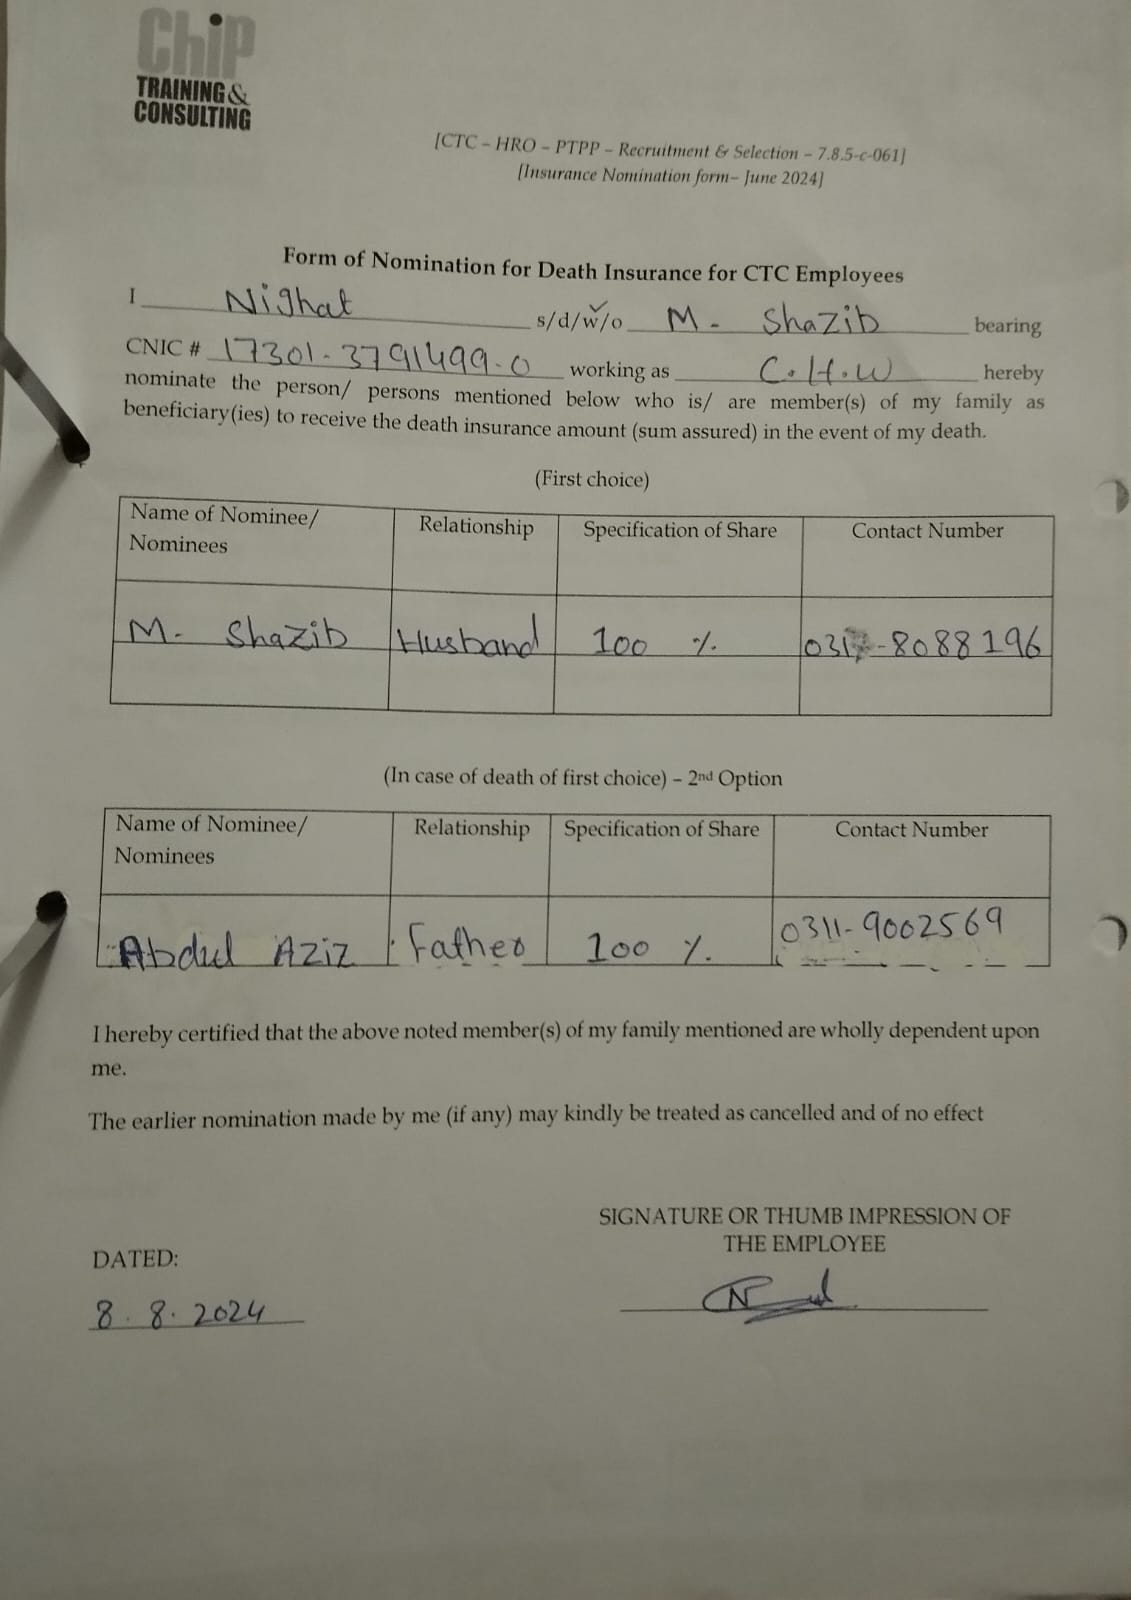 Chip
TRAINING &
CONSULTING
[CTC – HRO – PTPP – Recruitment & Selection – 7.8.5-c-061]
[Insurance Nomination form– June 2024]
Form of Nomination for Death Insurance for CTC Employees
I Nighat s/d/w/o M. Shazib bearing
CNIC # 17301-3791499-0 working as C.H.W hereby
nominate the person/ persons mentioned below who is/ are member(s) of my family as
beneficiary(ies) to receive the death insurance amount (sum assured) in the event of my death.
(First choice)
Name of Nominee/ Relationship Specification of Share Contact Number
Nominees
M. Shazib Husband 100 % -8088196
(In case of death of first choice) – 2nd Option
Name of Nominee/ Relationship Specification of Share Contact Number
Nominees
Abdul Aziz Father 100 % 0311-9002569
I hereby certified that the above noted member(s) of my family mentioned are wholly dependent upon
me.
The earlier nomination made by me (if any) may kindly be treated as cancelled and of no effect
SIGNATURE OR THUMB IMPRESSION OF
THE EMPLOYEE
DATED:
8.8.2024